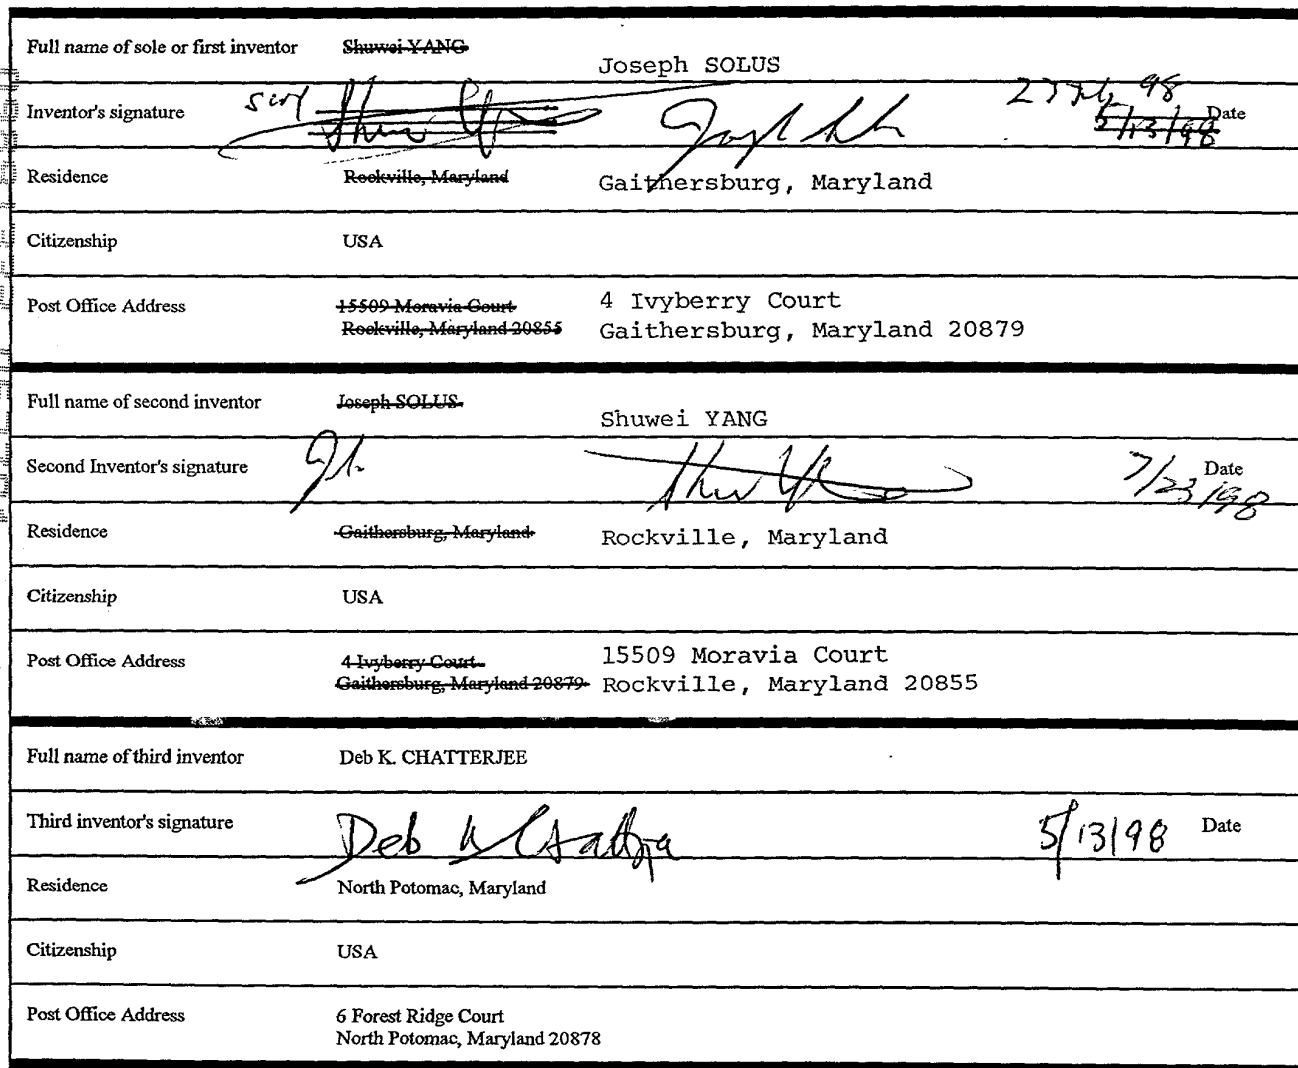 Full name of sole or first inventor Shuwei YANG
Joseph SOLUS
Inventor's signature Date
5/13/98
Residence Rockville, Maryland Gaithersburg, Maryland
Citizenship USA
Post Office Address 15509 Moravia Court 4 Ivyberry Court
Rockville, Maryland 20855 Gaithersburg, Maryland 20879
Full name of second inventor Joseph SOLUS
Shuwei YANG
Second Inventor's signature 7/23/98 Date
Residence Gaithersburg, Maryland Rockville, Maryland
Citizenship USA
Post Office Address 4 Ivyberry Court 15509 Moravia Court
Gaithersburg, Maryland 20879 Rockville, Maryland 20855
Full name of third inventor Deb K. CHATTERJEE
Third inventor's signature Deb K Chatterjee 5/13/98 Date
Residence North Potomac, Maryland
Citizenship USA
Post Office Address 6 Forest Ridge Court
North Potomac, Maryland 20878